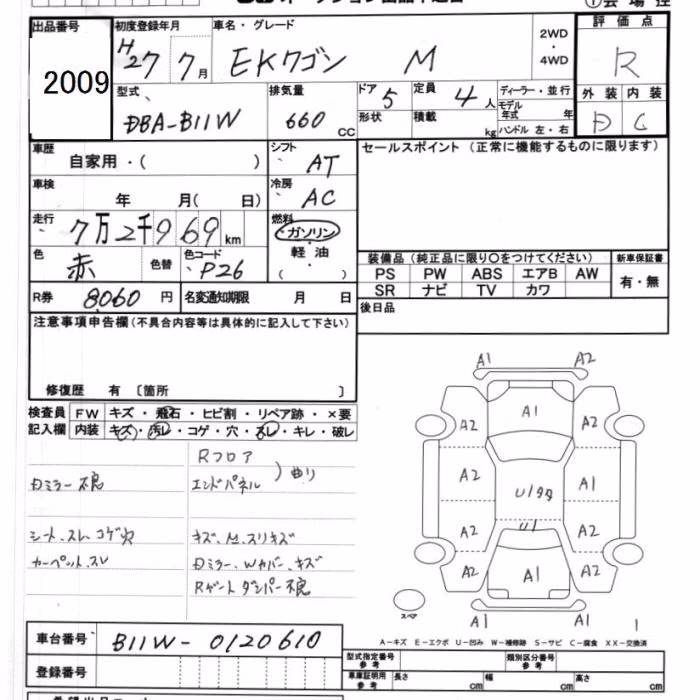 出品番号 初度登録年月 車名・グレード 2WD・4WD 評価点
2009 H27 7月 EKワゴン M R
型式 DBA-B11W 排気量 660 CC ドア 5 定員 4 人 ディーラー・並行 外装 内装
形状 積載 kg モデル年式 年 ハンドル 左・右 D C
車歴 自家用・( ) シフト AT セールスポイント (正常に機能するものに限ります)
車検 年 月( 日) 冷房 AC
走行 7万2千969km 燃料 ガソリン・軽油・( )
色 赤 色替 色コード P26 装備品(純正品に限り〇をつけてください) 新車保証書
PS PW ABS エアB AW 有・無
SR ナビ TV カワ
R券 8,060 円 名変通知期限 月 日 後日品
注意事項申告欄(不具合内容等は具体的に記入して下さい)
修復歴 有 〔箇所 〕
検査員 FW キズ・飛石・ヒビ割・リペア跡・×要
記入欄 内装 キズ・汚レ・コゲ・穴・スレ・キレ・破レ
Rフロア
Dミラー不良 エンドパネル )曲り
シート、スレ コゲ穴 キズ、M、スリキズ
カーペット、スレ Dミラー、Wカバー、キズ
Rゲートダンパー不良
A1 A2
A1
A2 A2
A2 U1タタ A1
U1
A2 A2
A2 A1 A2
スペア
A1 A2 1
A-キズ E-エクボ U-凹み W-補修跡 S-サビ C-腐食 XX-交換済
車台番号 B11W-0120610 型式指定番号 参考 類別区分番号 参考
登録番号 車庫証明用 参考 長さ cm 幅 cm 高さ cm